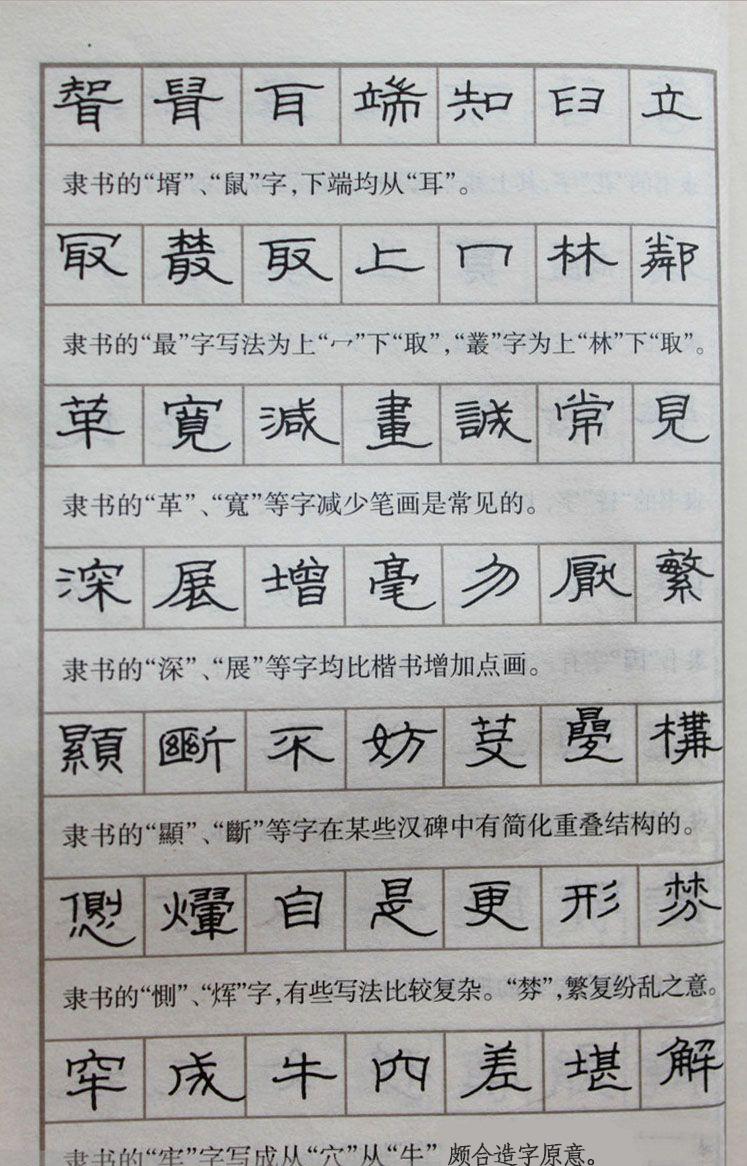 聟 耳 端 知 臼 立
隶书的“壻”、“鼠”字,下端均从“耳”。
冣 取 上 冖 林 鄰
隶书的“最”字写法为上“冖”下“取”,“叢”字为上“林”下“取”。
革 寬 減 畫 誠 常 見
隶书的“革”、“寬”等字减少笔画是常见的。
深 展 增 毫 勿 厭 繁
隶书的“深”、“展”等字均比楷书增加点画。
顯 斷 不 妨 芟 疊 構
隶书的“顯”、“斷”等字在某些汉碑中有简化重叠结构的。
惻 煇 自 是 更 形 棼
隶书的“惻”、“烨”字,有些写法比较复杂。“棼”,繁复纷乱之意。
窂 成 牛 内 差 堪 解
隶书的“牢”字写成从“穴”从“牛” 颇合造字原意。